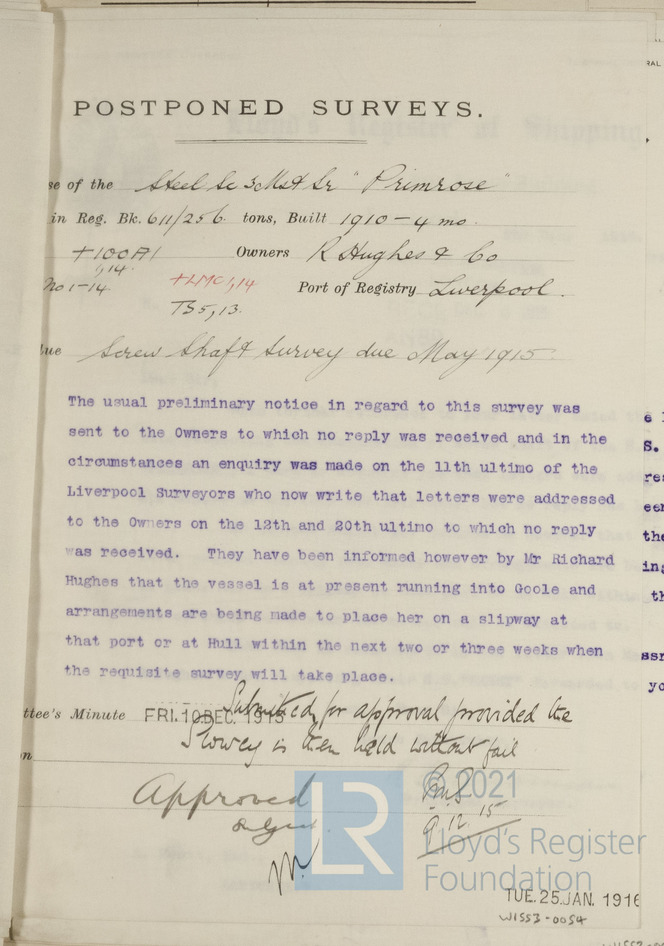 RAL
POSTPONED SURVEYS.
se of the Steel Sc 3Mst Sr "Primrose"
in Reg. Bk. 611/256 tons, Built 1910-4 mo.
+100A1 Owners R Hughes & Co
1,14.
No 1-14 +LMC 1,14 Port of Registry Liverpool.
TS 5,13.
ue Screw Shaft Survey due May 1915
The usual preliminary notice in regard to this survey was
sent to the Owners to which no reply was received and in the
circumstances an enquiry was made on the 11th ultimo of the
Liverpool Surveyors who now write that letters were addressed
to the Owners on the 12th and 20th ultimo to which no reply
was received. They have been informed however by Mr Richard
Hughes that the vessel is at present running into Goole and
arrangements are being made to place her on a slipway at
that port or at Hull within the next two or three weeks when
the requisite survey will take place.
Submitted for approval provided the
ttee's Minute FRI. 10 DEC. 1915
Survey is then held without fail
on
Approved
9.12.15
© 2021
LR
Lloyd's Register
Foundation
TUE. 25 JAN. 1916
W1553-0054